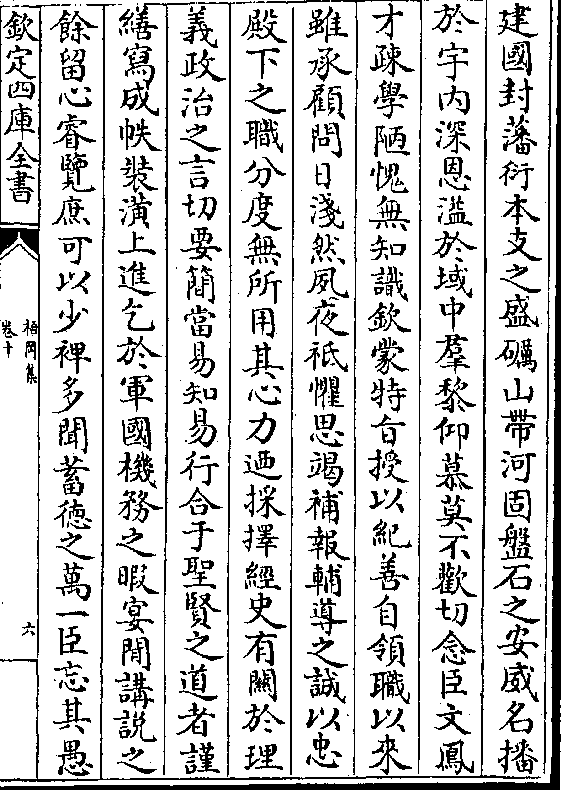 建國封藩衍本支之盛礪山帶河固盤石之安威名播
於宇内深恩滥於域中羣黎仰慕莫不歡切念臣文鳳
才疎學陋愧無知識欽蒙特旨授以紀善自領職以來
雖承顧問日淺然夙夜祗懼思竭補報輔導之誠以忠
殿下之職分度無所用其心力廼採擇經史有關於理
義政治之言切要簡當易知易行合于聖賢之道者謹
繕寫成帙裝潢上進乞於軍國機務之暇宴閒講説之
餘留心睿覽庶可以少裨多聞蓄徳之萬一臣忘其愚
欽定四庫全書
梧岡集
卷十
六